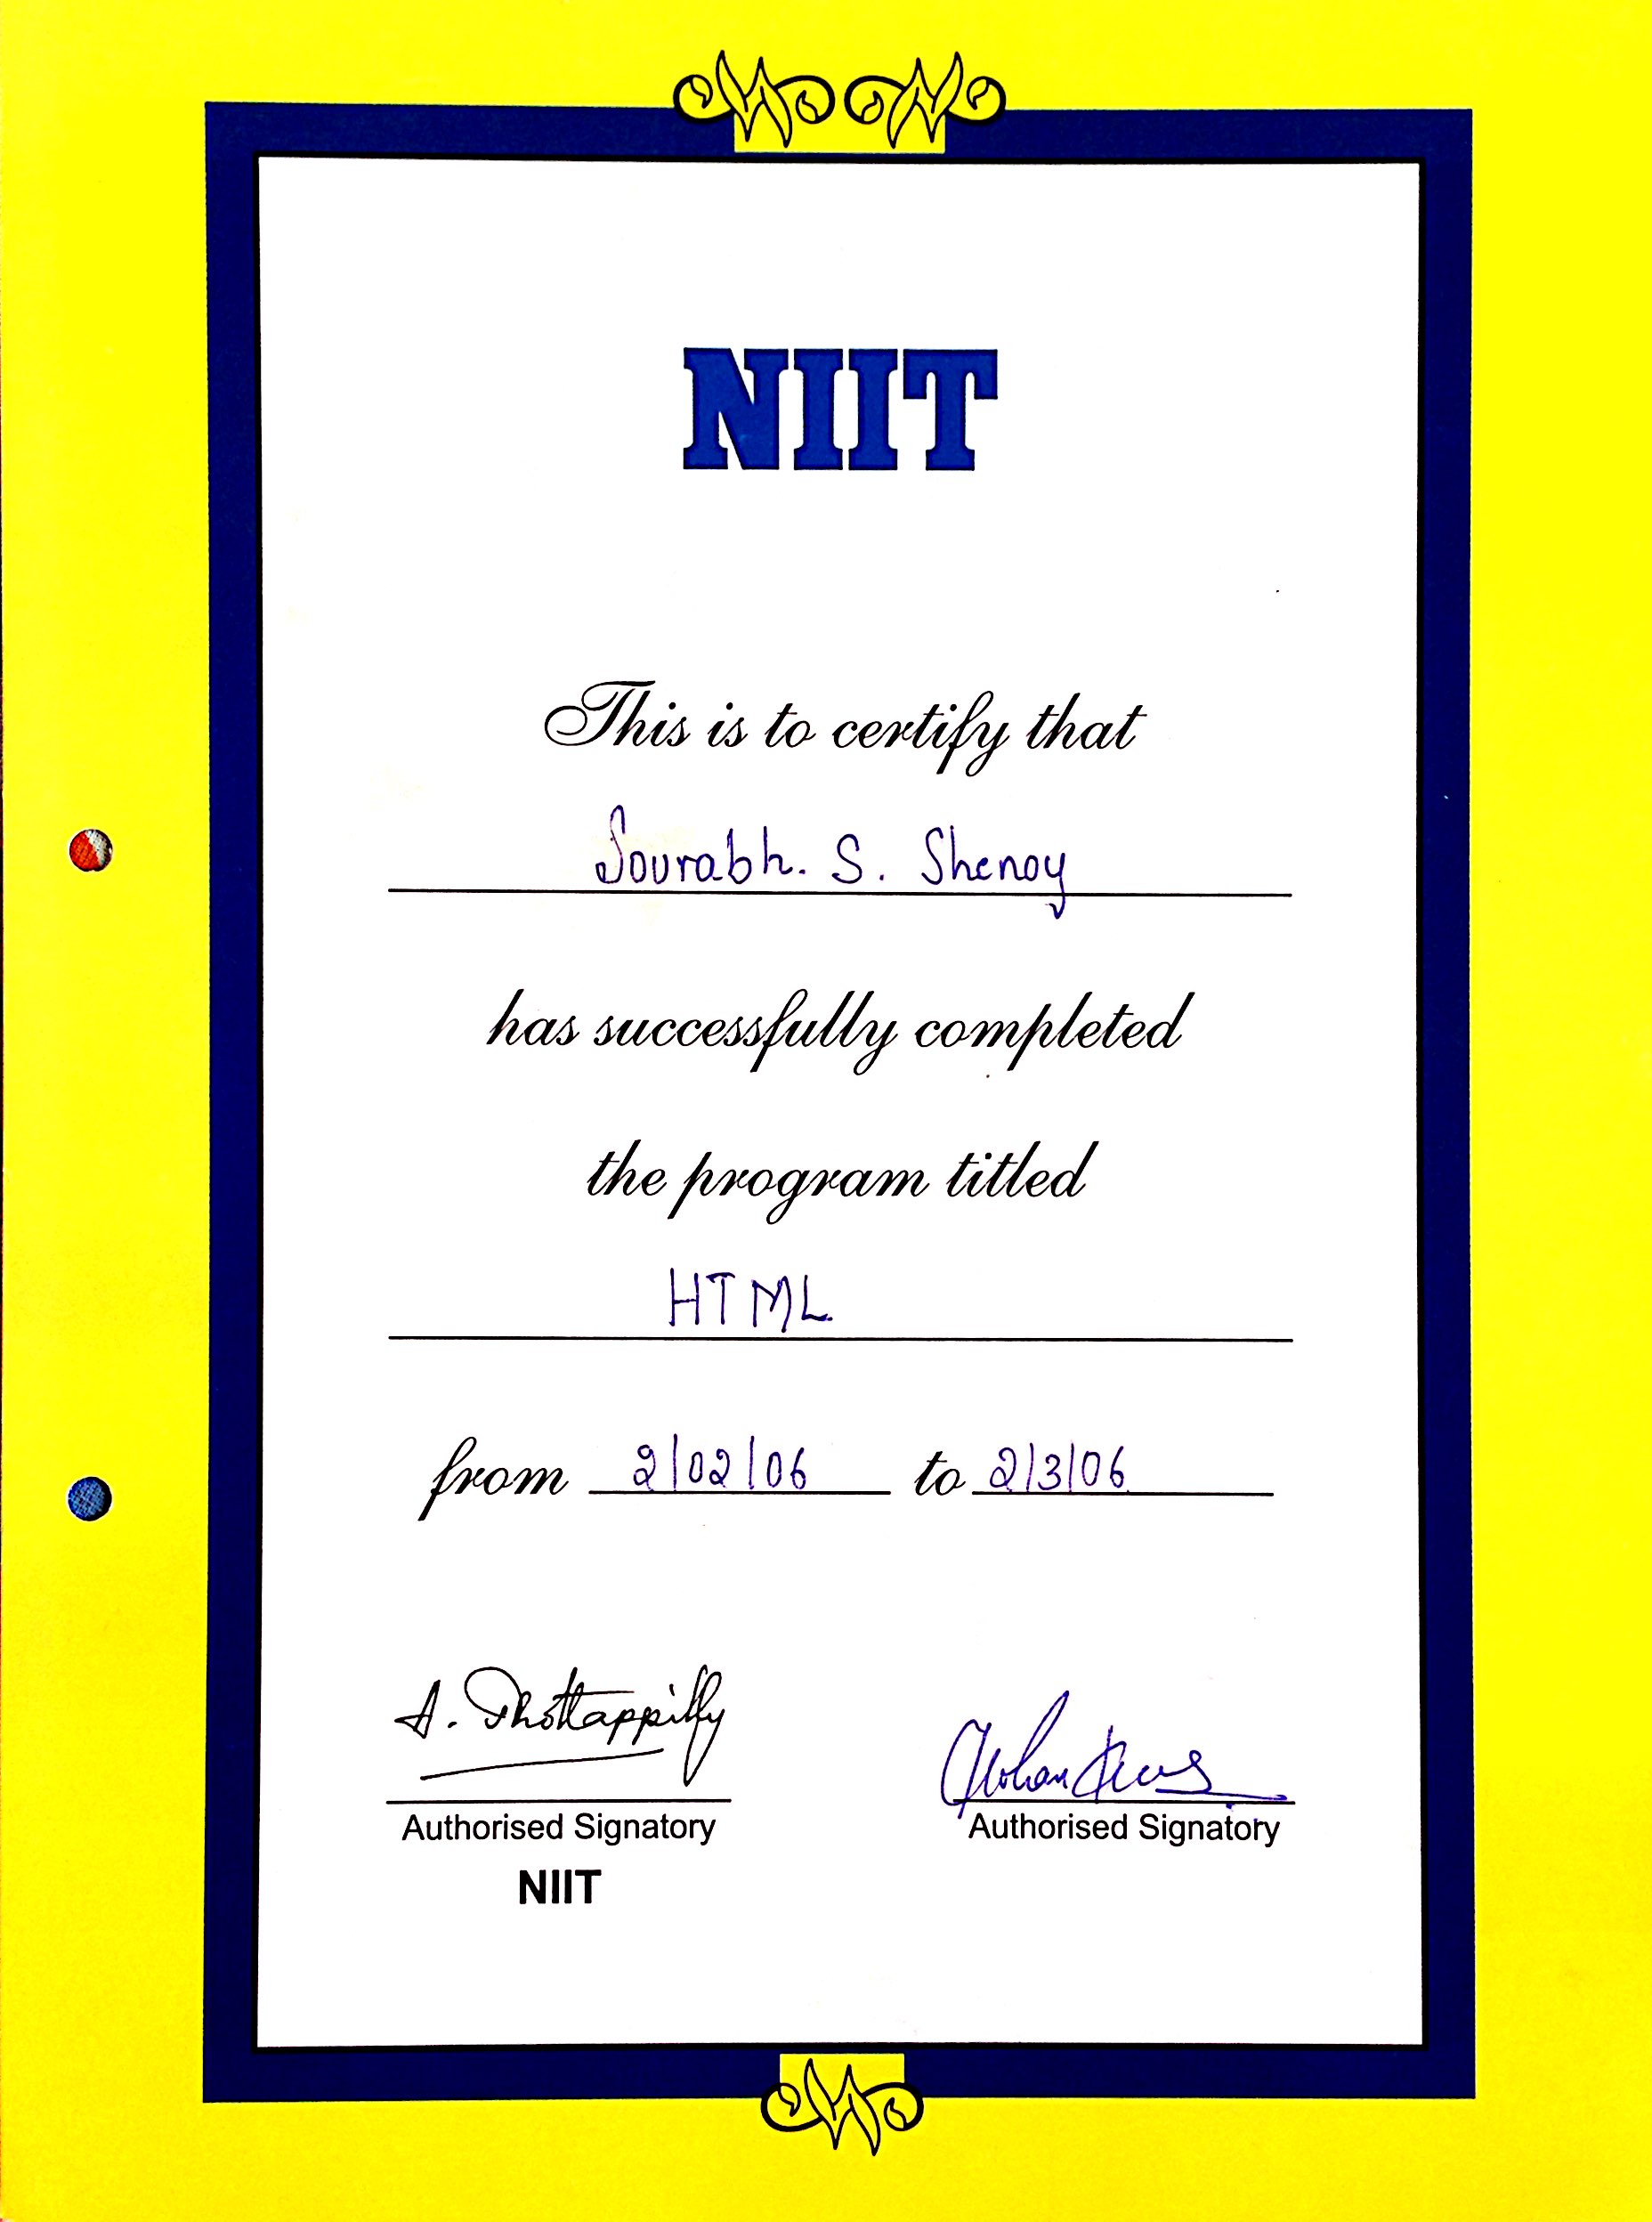 NIIT
This is to certify that
Sourabh. S. Shenoy
has successfully completed
the program titled
HTML
from 2/02/06 to 2/3/06
A. Thottappilly
Authorised Signatory Authorised Signatory
NIIT